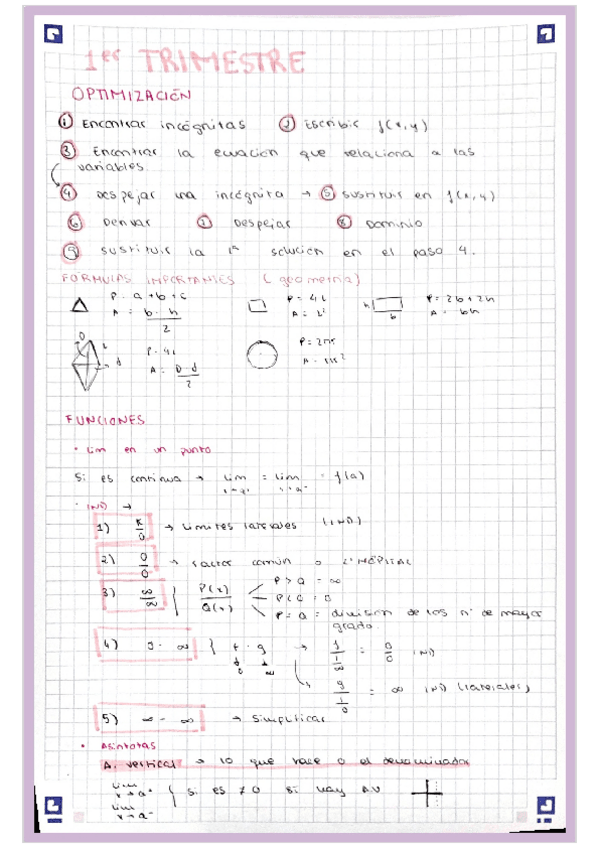 1er TRIMESTRE
OPTIMIZACIÓN
① Encontrar incógnitas ② Escribir f(x,y)
③ Encontrar la ecuación que relaciona a las
variables.
④ Despejar una incógnita → ⑤ sustituir en f(x,y)
⑥ Derivar ⑦ Despejar ⑧ Dominio
⑨ sustituir la 1ª solución en el paso 4.
FÓRMULAS IMPORTANTES (geometría)
P = a + b + c
A = b · h / 2
P = 4L
A = L²
h
b
P = 2b + 2h
A = bh
D
L
d
P = 4L
A = D · d / 2
P = 2πr
A = πr²
FUNCIONES
• Lim en un punto
Si es continua → lim = lim = f(a)
• IND →
1) K/0 → Límites laterales (IND)
2) 0/0 → Factor común o L'HÔPITAL
3) ∞/∞ } P(x)/Q(x)
P > Q = ∞
P < Q = 0
P = Q = division de los nº de mayor
grado
4) 0 · ∞ } f · g → f / 1/∞ = 0/0 IND
0 ∞
g / 1/0 = ∞ IND (laterales)
5) ∞ - ∞ → Simplificar
• Asíntotas
A. vertical → lo que hace 0 el denominador
lim x→a⁺
lim x→a⁻ } si es ≠ 0 si hay AV